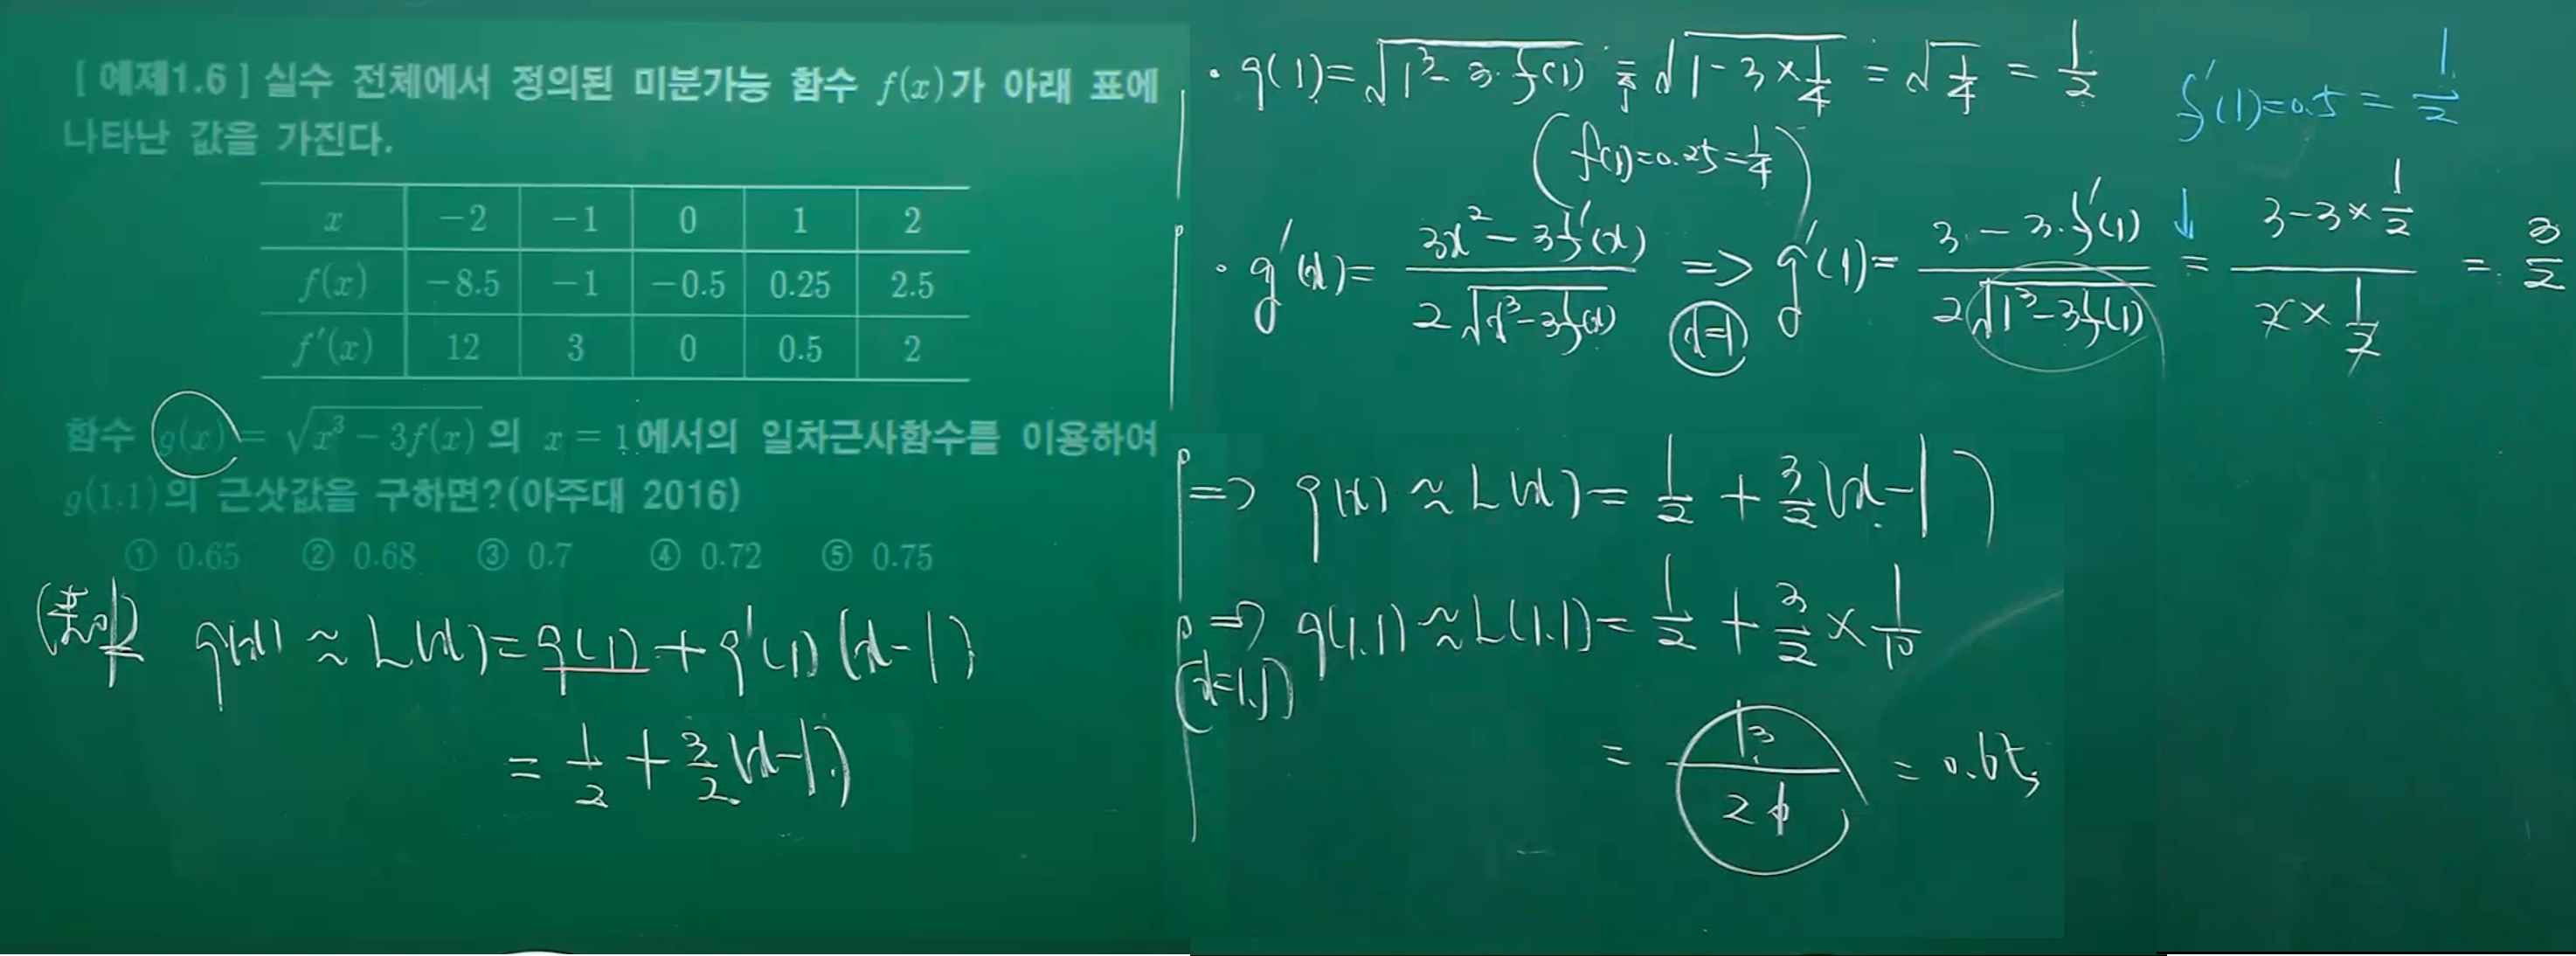 [예제1.6] 실수 전체에서 정의된 미분가능 함수 f(x)가 아래 표에
나타난 값을 가진다.
x -2 -1 0 1 2
f(x) -8.5 -1 -0.5 0.25 2.5
f'(x) 12 3 0 0.5 2
함수 g(x) = √(x³ - 3f(x)) 의 x = 1에서의 일차근사함수를 이용하여
g(1.1)의 근삿값을 구하면?(아주대 2016)
① 0.65 ② 0.68 ③ 0.7 ④ 0.72 ⑤ 0.75
(풀이) g(x) ≈ L(x) = g(1) + g'(1)(x-1)
= 1/2 + 3/2(x-1)
· g(1) = √(1³ - 3·f(1)) = √(1 - 3×1/4) = √(1/4) = 1/2
f'(1)=0.5 = 1/2
(f(1)=0.25=1/4)
· g'(x) = (3x² - 3f'(x)) / (2√(x³-3f(x))) => (x=1) g'(1) = (3 - 3·f'(1)) / (2√(1³-3f(1))) ↓ = (3-3×1/2) / (2×1/2) = 3/2
=> g(x) ≈ L(x) = 1/2 + 3/2(x-1)
=> g(1.1) ≈ L(1.1) = 1/2 + 3/2 × 1/10
(x=1.1)
= 13/20 = 0.65